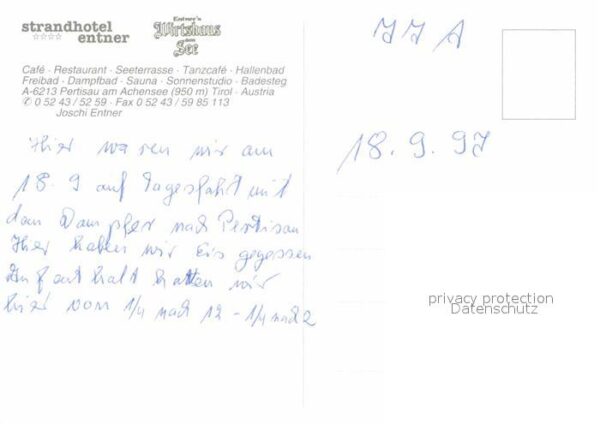 strandhotel
entner
Entner's
Wirtshaus
am
See
Café · Restaurant · Seeterrasse · Tanzcafé · Hallenbad
Freibad · Dampfbad · Sauna · Sonnenstudio · Badesteg
A-6213 Pertisau am Achensee (950 m) Tirol · Austria
✆ 0 52 43 / 52 59 · Fax 0 52 43 / 59 85 113
Joschi Entner
Hier waren wir am
18.9 auf Tagesfahrt mit
dem Dampfer nach Pertisau
Hier haben wir Eis gegessen
Aufenthalt hatten wir
hier von 1/4 nach 12 - 1/4 nach 2
18.9.97
privacy protection
Datenschutz